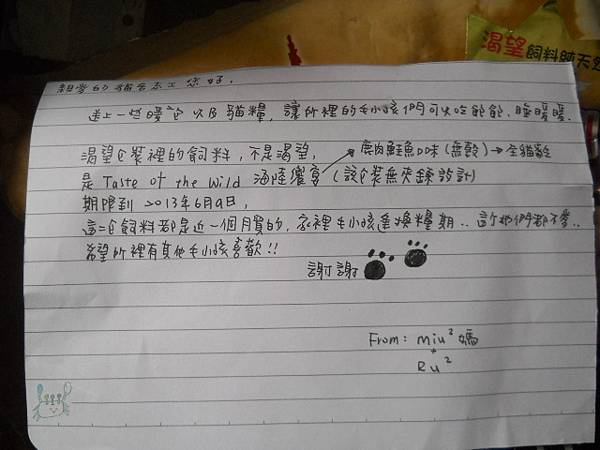 渴望飼料純天然
親愛的貓舍志工您好,
送上一些暖包以及貓糧,讓所裡的毛小孩們可以吃飽飽,睡暖暖.
渴望包裝裡的飼料,不是渴望,
鹿肉鮭魚口味(無穀)→全貓齡
是 Taste of the Wild 海陸饗宴(該包裝無夾鍊設計)
期限到2013年6月9日,
這二包飼料都是近一個月買的,家裡毛小孩逢換糧期..許牠們都不愛..
希望所裡有其他毛小孩喜歡!!
謝謝
From: miu² 媽
+
Ru²